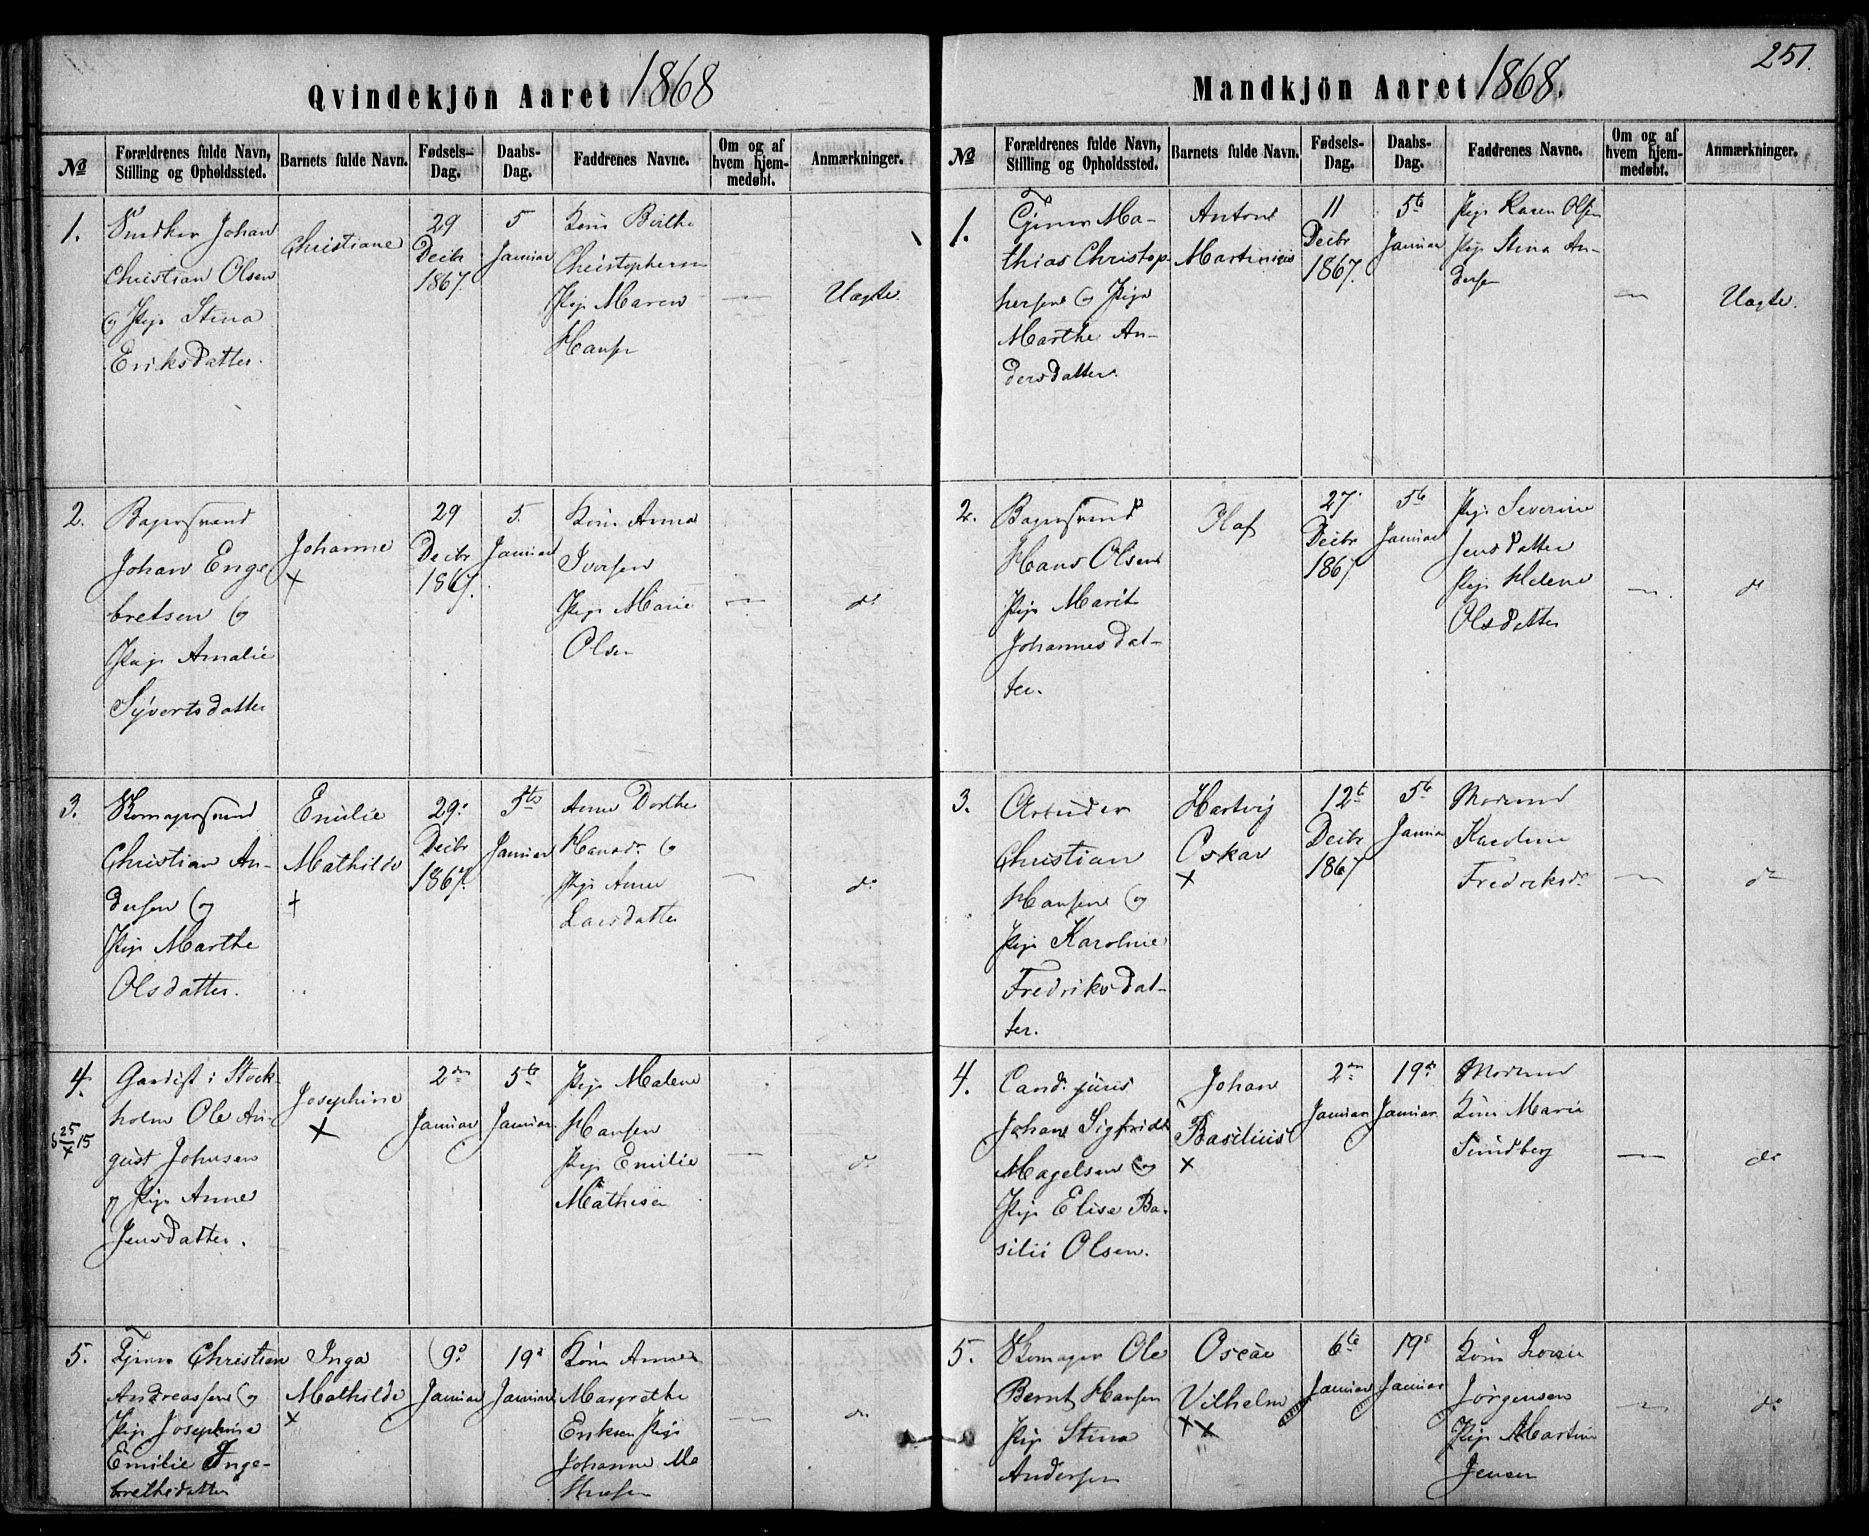 Qvindekjön Aaret 1868
№
Forældrenes fulde Navn, Stilling og Opholdssted.
Barnets fulde Navn.
Fødsels-Dag.
Daabs-Dag.
Faddrenes Navne.
Om og af hvem hjem-medøbt.
Anmærkninger.
1.
Snedker Johan
Christian Olsen
og Pige Stina
Eriksdatter.
Christiane
29
Decbr
1867
5
Januar
Kone Berthe
Pige Maren
Hansen
Uægte.
2.
Bagersvend
Johan Enge
bretsen og
Pige Amalie
Syvertsdatter
Johanne
+
29
Decbr
1867.
5.
Januar
Kone Anna
Iversen
Pige Marie
Olsen
do
3.
Skomagersvend
Christian An-
dersen og
Pige Marthe
Olsdatter.
Emilie
Mathilde
+
29.
Decbr
1867.
5te
Januar
Anne Dorthe
Hansdr og
Pige Anne
Larsdatter
do
4.
Gardist i Stock-
holm Ole Au-
gust Johnsen
og Pige Anne
Jensdatter.
Josephine
×
2den
Januar
5te
Januar
Pige Malene
Hansen
Pige Emilie
Mathisen
do
5.
Tjener Christian
Andreassen og
Pige Josephine
Emilie Inge-
brethsdatter
Inga
Mathilde
×
9de
Januar
19de
Januar
Kone Anne
Margrethe
Eriksen Pige
Johanne Ma
thisen
do
251.
Mandkjön Aaret 1868.
№
Forældrenes fulde Navn, Stilling og Opholdssted.
Barnets fulde Navn.
Fødsels-Dag.
Daabs-Dag.
Faddrenes Navne.
Om og af hvem hjem-medøbt.
Anmærkninger.
1.
Tjener Ma-
thias Christop-
hersen og Pige
Marthe An-
dersdatter.
Anton
Martinius
11
Decbr
1867.
5te
Januar
Pige Karen Olsen
Pige Stina An-
dersen
Uægte.
2.
Bagersvend
Hans Olsen
Pige Marit
Johannesdat-
ter.
Olaf
27
Decbr
1867
5te
Januar
Pige Severine
Jensdatter
Pige Helene
Olsdatter
do
3.
Arbeider
Christian
Hansen og
Pige Karoline
Fredriksdat-
ter.
Hartvig
Oskar
×
12te
Decbr
1867
5te
Januar
Moderen
Karoline
Fredriksdr
do
4.
Cand. juris
Johan Sigfridt
Magelsen og
Pige Elise Ba-
silii Olsen.
Johan
Basilius
×
2den
Januar
19de
Januar.
Moderen
Kone Marie
Sundberg
do
5.
Skomager Ole
Bernt Hansen
Pige Stina
Andersen
Oscar
Vilhelm
××
6te
Januar
19de
Januar
Kone Lovise
Jörgensen
Pige Martine
Jensen
do